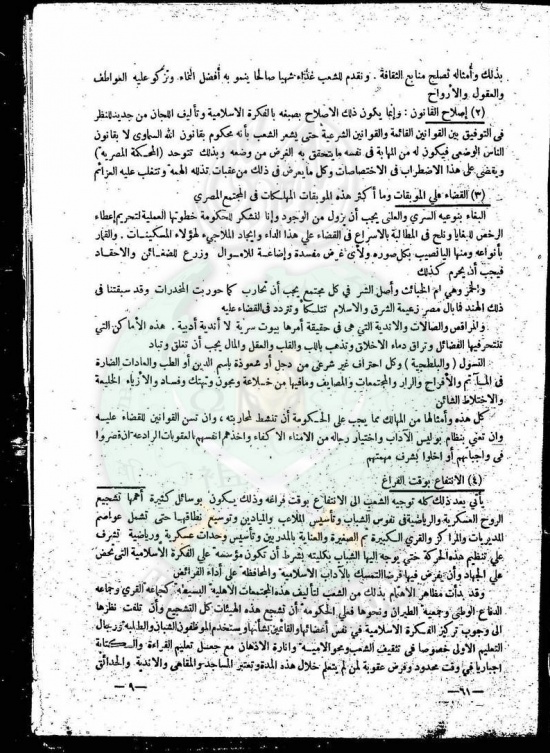 بذلك وأمثاله تصلح منابع الثقافة . ونقدم للشعب غذاء شهيا صالحا ينمو به أفضل النماء وتزكو عليه العواطف
والعقول والأرواح
(٢) إصلاح القانون : وإنما يكون ذلك الاصلاح بصبغه بالفكرة الاسلامية وتأليف اللجان من جديد للنظر
فى التوفيق بين القوانين القائمة والقوانين الشرعية حتى يشعر الشعب بأنه محكوم بقانون الله السماوى لا بقانون
الناس الوضعى فيكون له من المهابة فى نفسه ما يتحقق به الغرض من وضعه وبذلك تتوحد (المحكمة المصرية)
ويقضى على هذا الاضطراب فى الاختصاصات وكل ما يعرض فى ذلك من عقبات تذلله الهمة وتتغلب عليه العزائم
(٣) القضاء على الموبقات وما أكثر هذه الموبقات المهلكات فى المجتمع المصرى
البغاء بنوعيه السرى والعلنى يجب أن يزول من الوجود وإنا لنشكر للحكومة خطوتها العملية لتحريم إعطاء
الرخص للبغايا ونلح فى المطالبة بالاسراع فى القضاء على هذا الداء وإيجاد الملاجىء لهؤلاء المسكينات . والقمار
بأنواعه ومنها اليانصيب بكل صوره ولأى غرض مفسدة وإضاعة للاموال وزرع للضغائن والاحقاد
فيجب أن يحرم كذلك
والخمر وهى ام الخبائث وأصل الشر فى كل مجتمع يجب أن تحارب كما حوربت المخدرات وقد سبقتنا فى
ذلك الهند فما بال مصر زعيمة الشرق والاسلام تتلكأ وتتردد فى القضاء عليه
والمراقص والصالات والاندية التى هى فى حقيقة أمرها بيوت سرية لا أندية أدبية . هذه الأماكن التى
تنتحر فيها الفضائل وتراق دماء الاخلاق وتذهب باللب والقلب والعقل والمال يجب أن تغلق وتباد
التسول ( والبلطجية ) وكل احتراف غير شرعى من دجل أو شعوذة باسم الدين أو الطب والعادات الضارة
فى المآتم والأفراح والزار والمجتمعات والمصايف وما فيها من خلاعة ومجون وتهتك وفساد والأزياء الخليعة
والاختلاط الشائن
كل هذه وأمثالها من المهالك مما يجب على الحكومة أن تنشط لمحاربته ، وان تسن القوانين للقضاء عليه
وان تعنى بنظام بوليس الآداب واختيار رجاله من الامناء الاكفاء واخذهم انفسهم بالعقوبات الرادعة ان قصروا
فى واجباتهم أو اخلوا بشرف مهمتهم
(٤) الانتفاع بوقت الفراغ
يأتى بعد ذلك كله توجيه الشعب الى الانتفاع بوقت فراغه وذلك يكون بوسائل كثيرة أهمها تشجيع
الروح العسكرية والرياضية فى نفوس الشباب وتأسيس الملاعب والميادين وتوسيع نطاقها حتى تشمل عواصم
المديريات والمراكز والقرى الكبيرة ثم الصغيرة والعناية بالمدربين وتأسيس وحدات عسكرية ورياضية تشرف
على تنظيم هذه الحركة حتى يوجه اليها الشباب بكليته بشرط أن تكون مؤسسة على الفكرة الاسلامية التى تحض
على الجهاد وأن يفرض فيها فرضا التمسك بالآداب الاسلامية والمحافظة على أداء الفرائض
وقد بدأت مظاهر الاهتمام بذلك من الشعب لتأليف هذه المجتمعات الأهلية البسيطة كجماعة القرى وجماعة
الدفاع الوطنى وجمعية الطيران ونحوها فعلى الحكومة أن تشجع هذه الهيئات كل التشجيع وأن تلفت نظرها
الى وجوب تركيز الفكرة الاسلامية فى نفس أعضائها والقائمين بشأنها وستخدم الموظفون الشبان والطلبة ورجال
التعليم الاولى خصوصا فى تثقيف الشعب ومحو الامية وانارة الاذهان مع جعل تعليم القراءة والكتابة
اجباريا فى وقت محدود وفرض عقوبة لمن لم يتعلم خلال هذه المدة وتعتبر المساجد والمقاهى والاندية والحدائق
— ٩ —
— ٦١ —